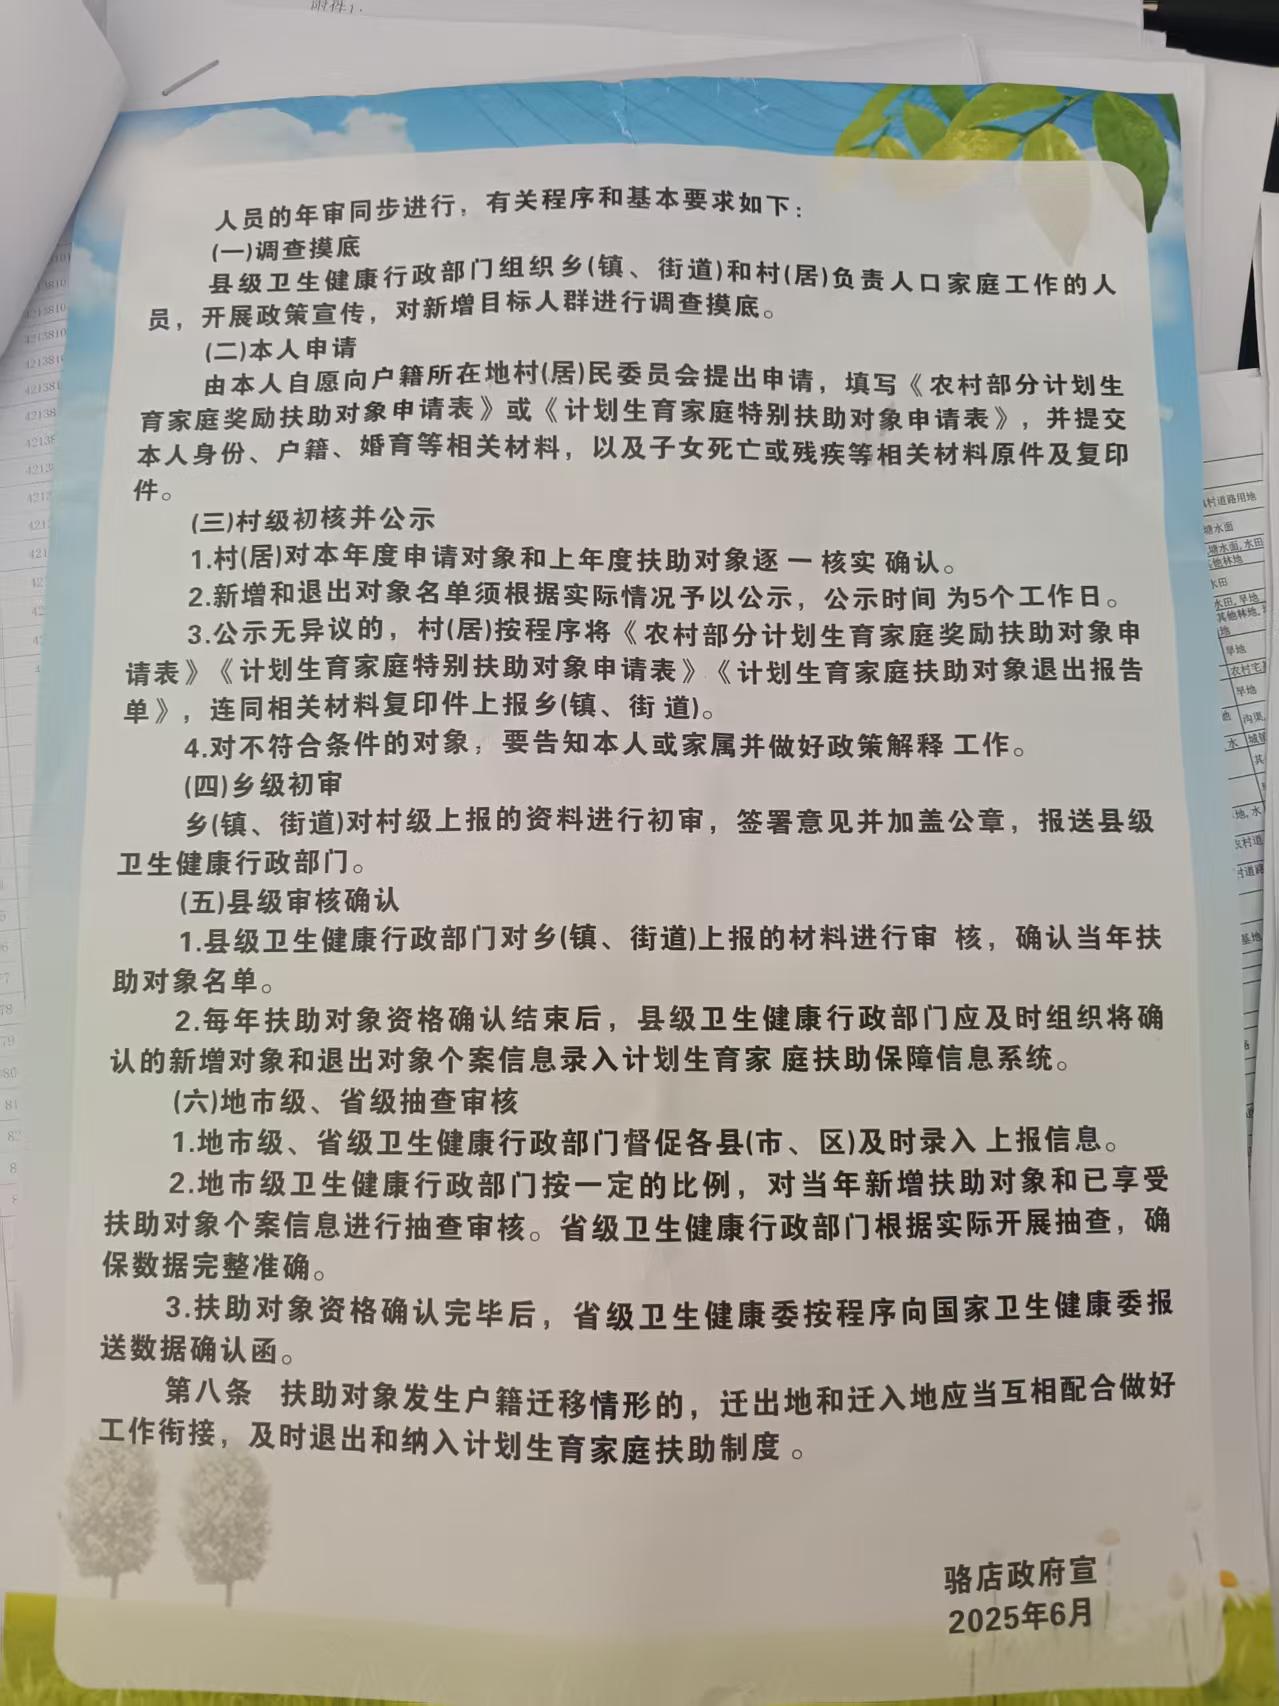 附件1:
人员的年审同步进行，有关程序和基本要求如下：
(一)调查摸底
县级卫生健康行政部门组织乡(镇、街道)和村(居)负责人口家庭工作的人
员，开展政策宣传，对新增目标人群进行调查摸底。
(二)本人申请
由本人自愿向户籍所在地村(居)民委员会提出申请，填写《农村部分计划生
育家庭奖励扶助对象申请表》或《计划生育家庭特别扶助对象申请表》，并提交
本人身份、户籍、婚育等相关材料，以及子女死亡或残疾等相关材料原件及复印
件。
(三)村级初核并公示
1.村(居)对本年度申请对象和上年度扶助对象逐 一 核实 确认。
2.新增和退出对象名单须根据实际情况予以公示，公示时间 为5个工作日。
3.公示无异议的，村(居)按程序将《农村部分计划生育家庭奖励扶助对象申
请表》《计划生育家庭特别扶助对象申请表》《计划生育家庭扶助对象退出报告
单》，连同相关材料复印件上报乡(镇、街 道)。
4.对不符合条件的对象，要告知本人或家属并做好政策解释 工作。
(四)乡级初审
乡(镇、街道)对村级上报的资料进行初审，签署意见并加盖公章，报送县级
卫生健康行政部门。
(五)县级审核确认
1.县级卫生健康行政部门对乡(镇、街道)上报的材料进行审 核，确认当年扶
助对象名单。
2.每年扶助对象资格确认结束后，县级卫生健康行政部门应及时组织将确
认的新增对象和退出对象个案信息录入计划生育家 庭扶助保障信息系统。
(六)地市级、省级抽查审核
1.地市级、省级卫生健康行政部门督促各县(市、区)及时录入 上报信息。
2.地市级卫生健康行政部门按一定的比例，对当年新增扶助对象和已享受
扶助对象个案信息进行抽查审核。省级卫生健康行政部门根据实际开展抽查，确
保数据完整准确。
3.扶助对象资格确认完毕后，省级卫生健康委按程序向国家卫生健康委报
送数据确认函。
第八条 扶助对象发生户籍迁移情形的，迁出地和迁入地应当互相配合做好
工作衔接，及时退出和纳入计划生育家庭扶助制度 。
骆店政府宣
2025年6月
村道路用地
塘水面
塘水面,水田
其他林地
水田
水田,旱地
其他林地
旱地
农村宅
旱地
沟渠